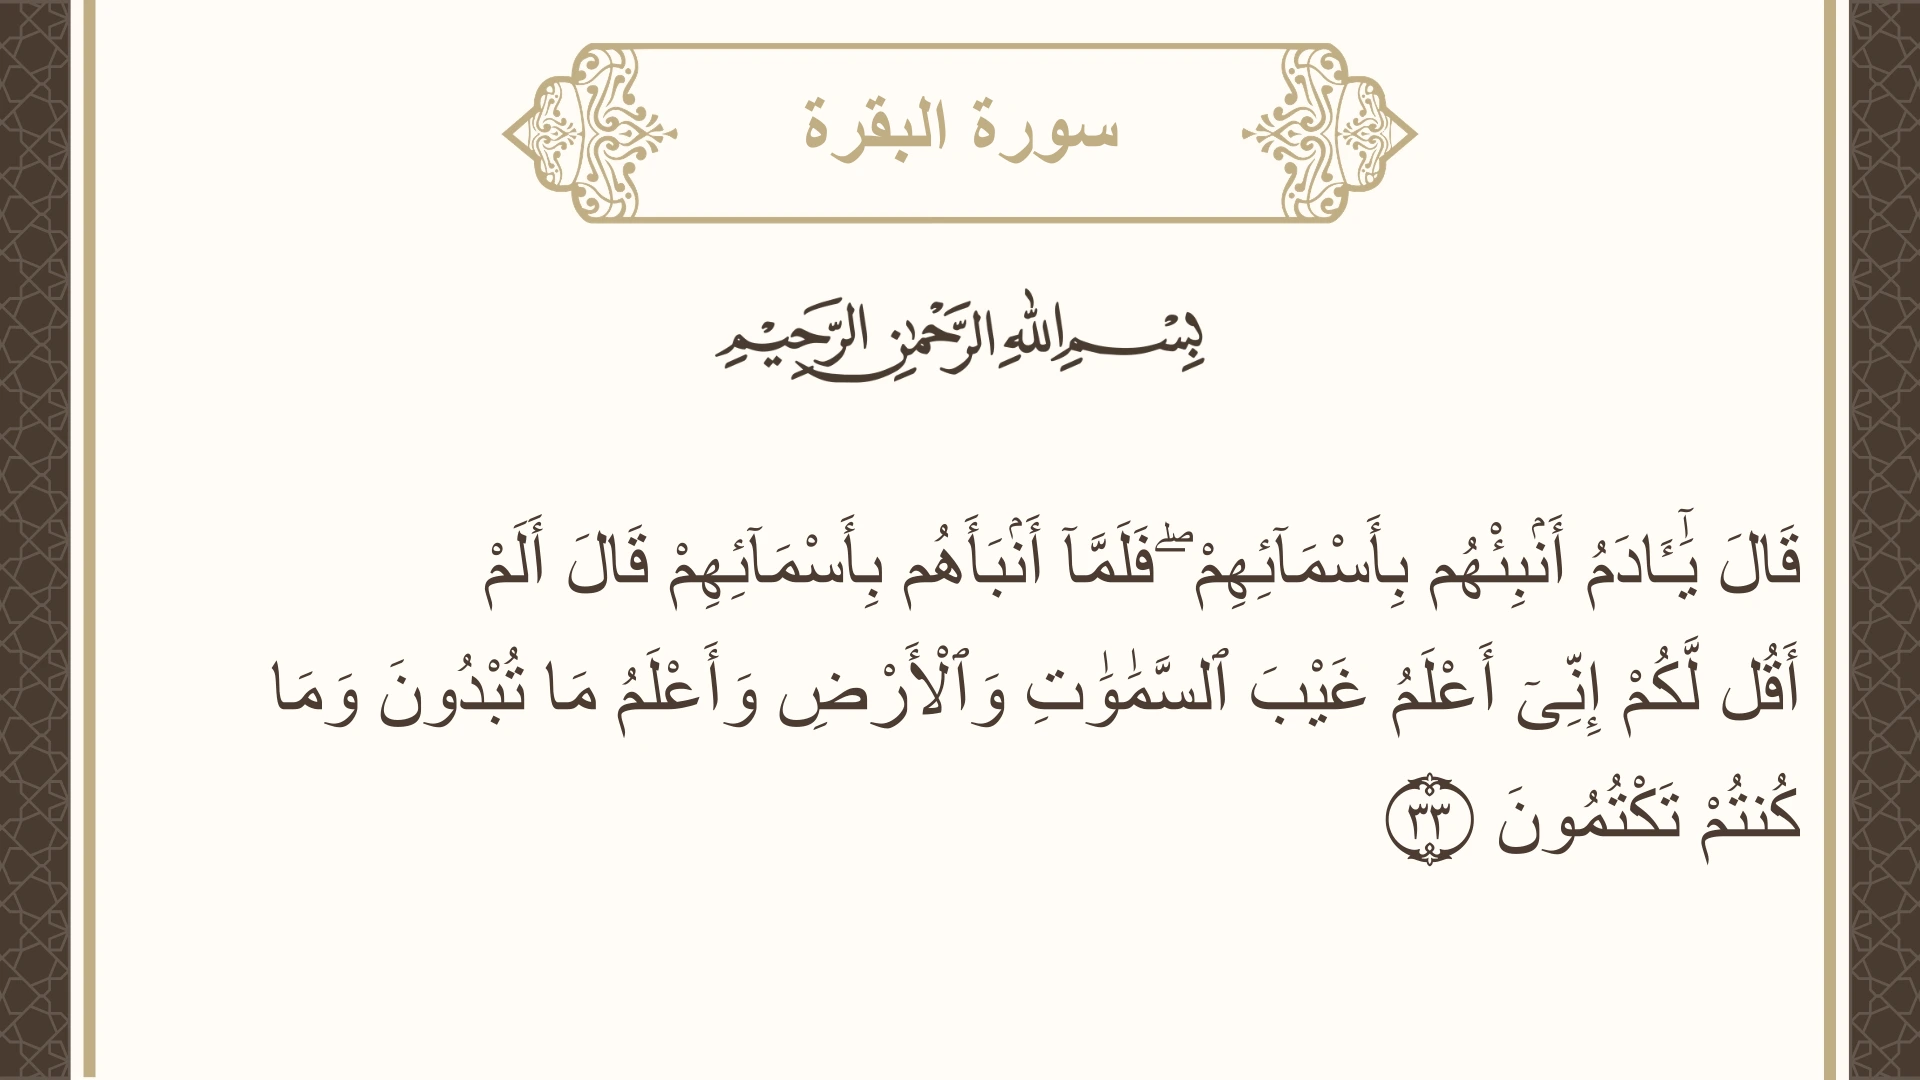 سورة البقرة
بِسْمِ اللهِ الرَّحْمٰنِ الرَّحِيْمِ
قَالَ يَٰٓـَٔادَمُ أَنۢبِئْهُم بِأَسْمَآئِهِمْ ۖ فَلَمَّآ أَنۢبَأَهُم بِأَسْمَآئِهِمْ قَالَ أَلَمْ
أَقُل لَّكُمْ إِنِّىٓ أَعْلَمُ غَيْبَ ٱلسَّمَٰوَٰتِ وَٱلْأَرْضِ وَأَعْلَمُ مَا تُبْدُونَ وَمَا
كُنتُمْ تَكْتُمُونَ ٣٣